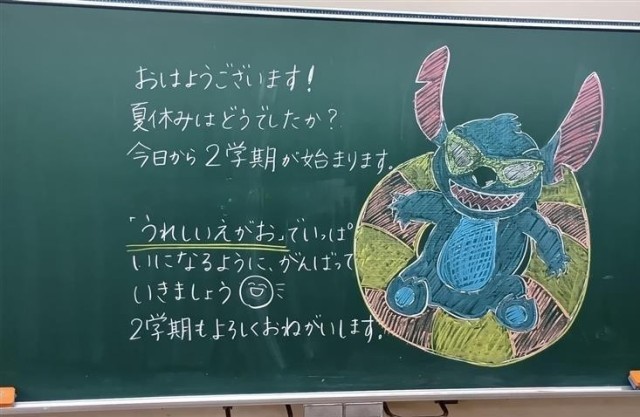 おはようございます!
夏休みはどうでしたか?
今日から2学期が始まります。
「うれしいえがお」でいっぱ
いになるように、がんばって
いきましょう
2学期もよろしくおねがいします。